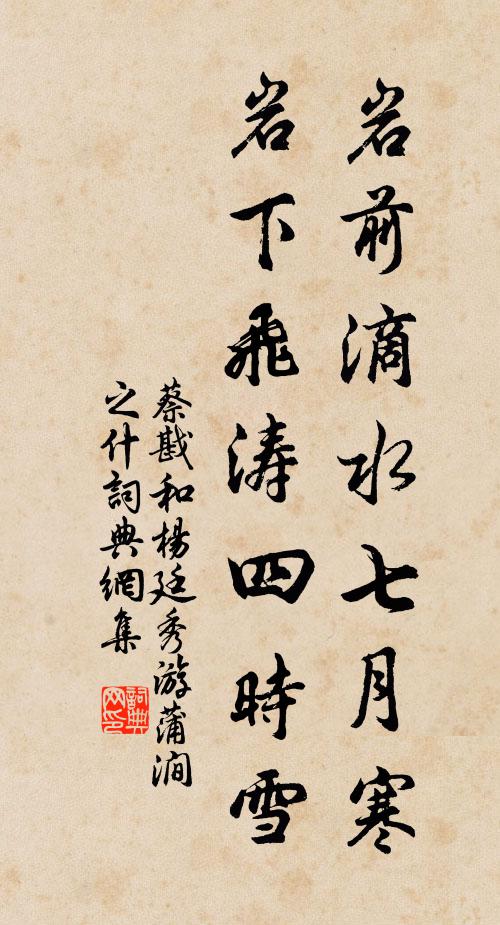 岩前滴水七月寒
岩下飛涛四時雪
蔡戡和楊廷秀游蒲澗
之什詞典網集
詞典
网印